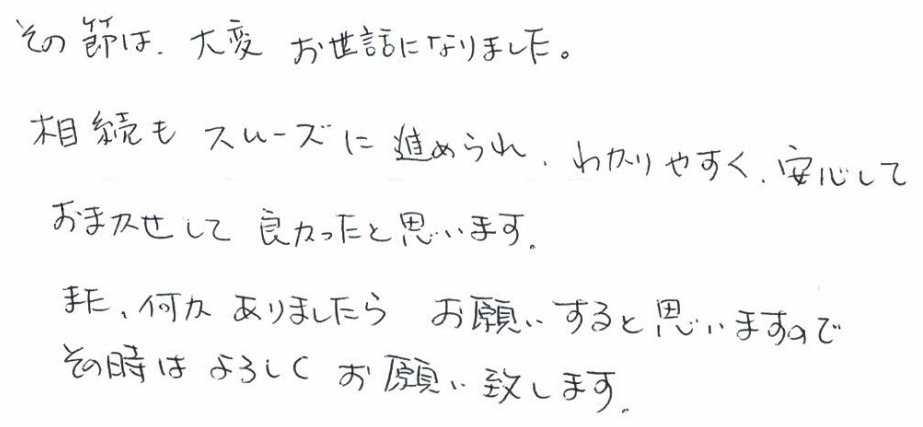 その節は、大変 お世話になりました。
相続も スムーズに 進められ、わかりやすく、安心して
おまかせして 良かったと思います。
また、何か ありましたら お願いすると思いますので
その時は よろしく お願い致します。